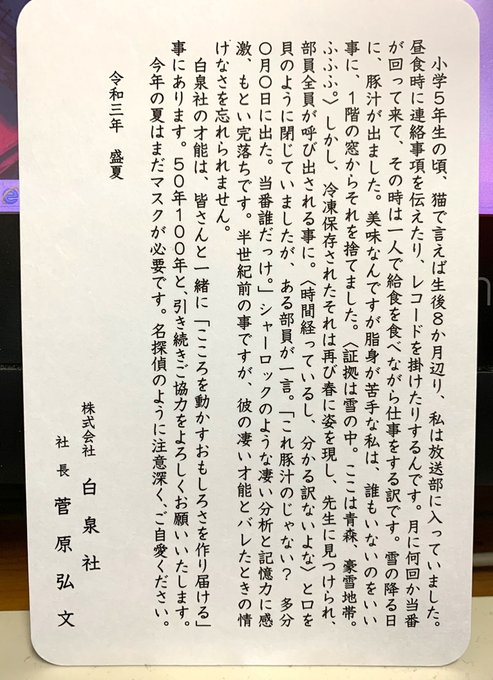 小学5年生の頃、猫で言えば生後8か月辺り、私は放送部に入っていました。
昼食時に連絡事項を伝えたり、レコードを掛けたりするんです。月に何回か当番
が回って来て、その時は一人で給食を食べながら仕事をする訳です。雪の降る日
に、豚汁が出ました。美味なんですが脂身が苦手な私は、誰もいないのをいい
事に、1階の窓からそれを捨てました。〈証拠は雪の中。ここは青森、豪雪地帯。
ふふふ。〉しかし、冷凍保存されたそれは再び春に姿を現し、先生に見つけられ、
部員全員が呼び出される事に。〈時間経っているし、分かる訳ないよな〉と口を
貝のように閉じていましたが、ある部員が一言。「これ豚汁のじゃない? 多分
〇月〇日に出た。当番誰だっけ。」シャーロックのような凄い分析と記憶力に感
激、もとい完落ちです。半世紀前の事ですが、彼の凄い才能とバレたときの情
けなさを忘れられません。
白泉社の才能は、皆さんと一緒に「こころを動かすおもしろさを作り届ける」
事にあります。50年100年と、引き続きご協力をよろしくお願いいたします。
今年の夏はまだマスクが必要です。名探偵のように注意深く、ご自愛ください。
令和三年 盛夏
株式会社 白泉社
社長 菅原弘文